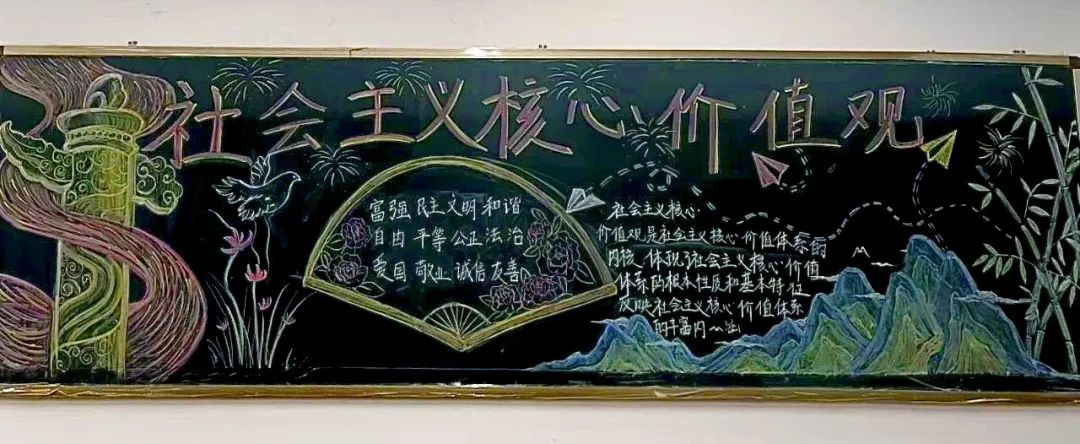 社会主义核心价值观
富强 民主 文明 和谐
自由 平等 公正 法治
爱国 敬业 诚信 友善
社会主义核心
价值观是社会主义核心价值体系的
内核、体现社会主义核心价值
体系的根本性质和基本特征
反映社会主义核心价值体系
的丰富内